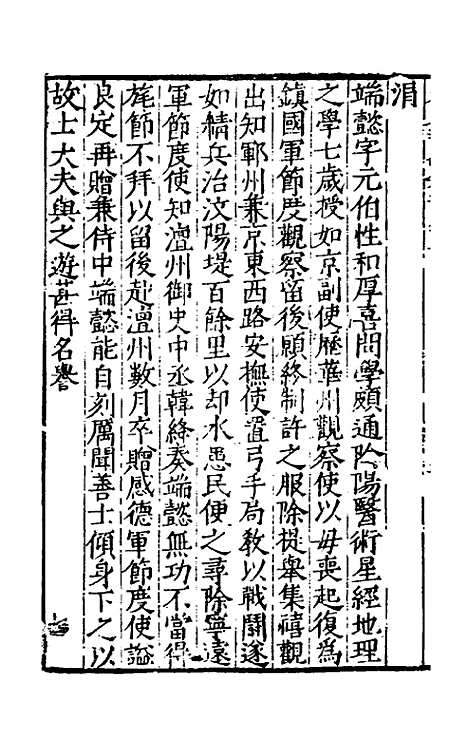 涓
端懿字元伯性和厚喜問學頗通陰陽醫術星經地理
之學七歲授如京副使歷華州觀察使以母喪起復為
鎮國軍節度觀察留後願終制許之服除提舉集禧觀
出知鄆州兼京東西路安撫使置弓手局教以戰鬬遂
如精兵治汶陽堤百餘里以却水患民便之尋除寧遠
軍節度使知澶州御史中丞韓絳奏端懿無功不當得
旄節不拜以留後赴澶州數月卒贈感德軍節度使謚
良定再贈兼侍中端懿能自刻厲聞善士傾身下之以
故士大夫與之遊甚得名譽